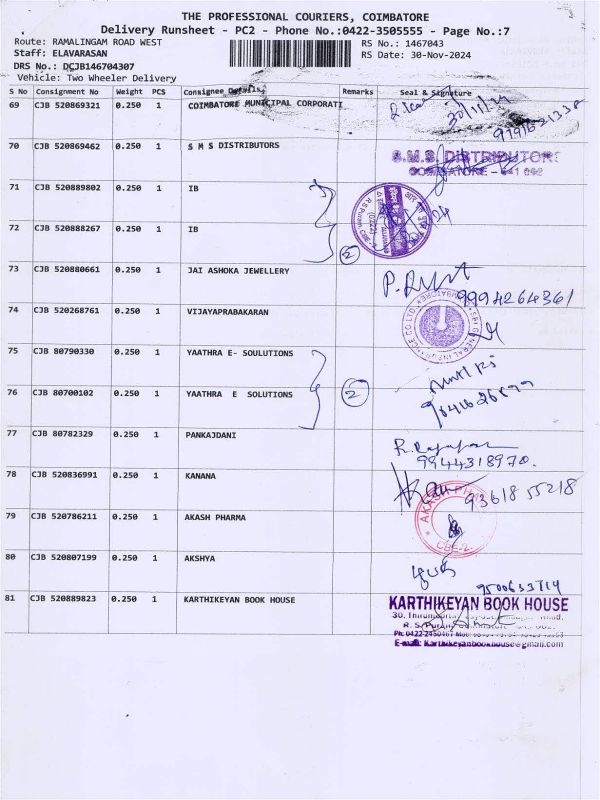 THE PROFESSIONAL COURIERS, COIMBATORE
Delivery Runsheet - PC2 - Phone No.:0422-3505555 - Page No.:7
Route: RAMALINGAM ROAD WEST
RS No.: 1467043
Staff: ELAVARASAN
RS Date: 30-Nov-2024
DRS No.: DCJB146704307
Vehicle: Two Wheeler Delivery
S No Consignment No Weight PCS Consignee Details Remarks Seal & Signature
69 CJB 520869321 0.250 1 COIMBATORE MUNICIPAL CORPORATI
30/11/24
70 CJB 520869462 0.250 1 S M S DISTRIBUTORS
S.M.S. DISTRIBUTORS
COIMBATORE - 641 002
71 CJB 520889802 0.250 1 IB
72 CJB 520888267 0.250 1 IB
2
73 CJB 520880661 0.250 1 JAI ASHOKA JEWELLERY
9994264361
74 CJB 520268761 0.250 1 VIJAYAPRABAKARAN
75 CJB 80790330 0.250 1 YAATHRA E- SOULUTIONS
76 CJB 80700102 0.250 1 YAATHRA E SOLUTIONS
2
77 CJB 80782329 0.250 1 PANKAJDANI
9944318970.
78 CJB 520836991 0.250 1 KANANA
9361855218
79 CJB 520786211 0.250 1 AKASH PHARMA
AKASH PHARMA
CBE-2
80 CJB 520807199 0.250 1 AKSHYA
81 CJB 520889823 0.250 1 KARTHIKEYAN BOOK HOUSE
KARTHIKEYAN BOOK HOUSE
E-mail: Karthikeyanbookhouse@gmail.com